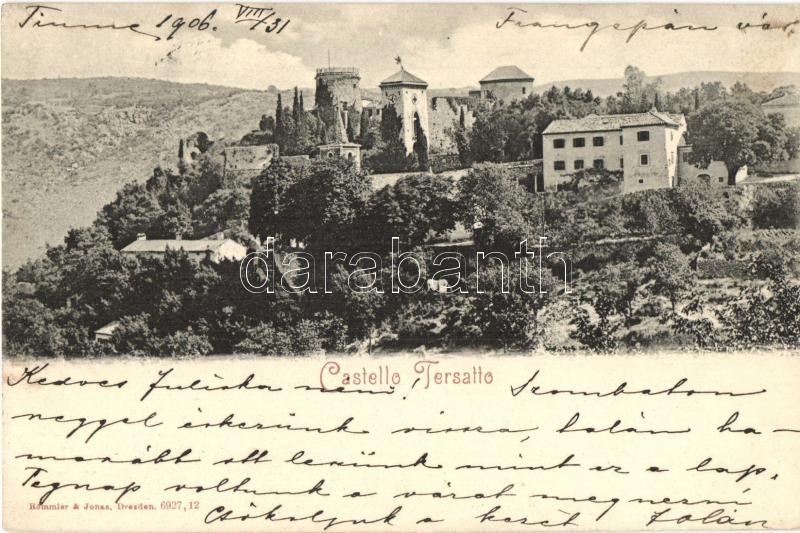 Fiume 1906. VIII/31
Frangepán vár.
darabanth
Castello Tersatto
Kedves Juliska nem! Szombaton
reggel érkezünk vissza, talán ha-
marább ott leszünk mint ez a lap.
Tegnap voltunk a várat megnézni
Römmler & Jonas, Dresden. 6927,12
Csókoljuk a kezét Zolán